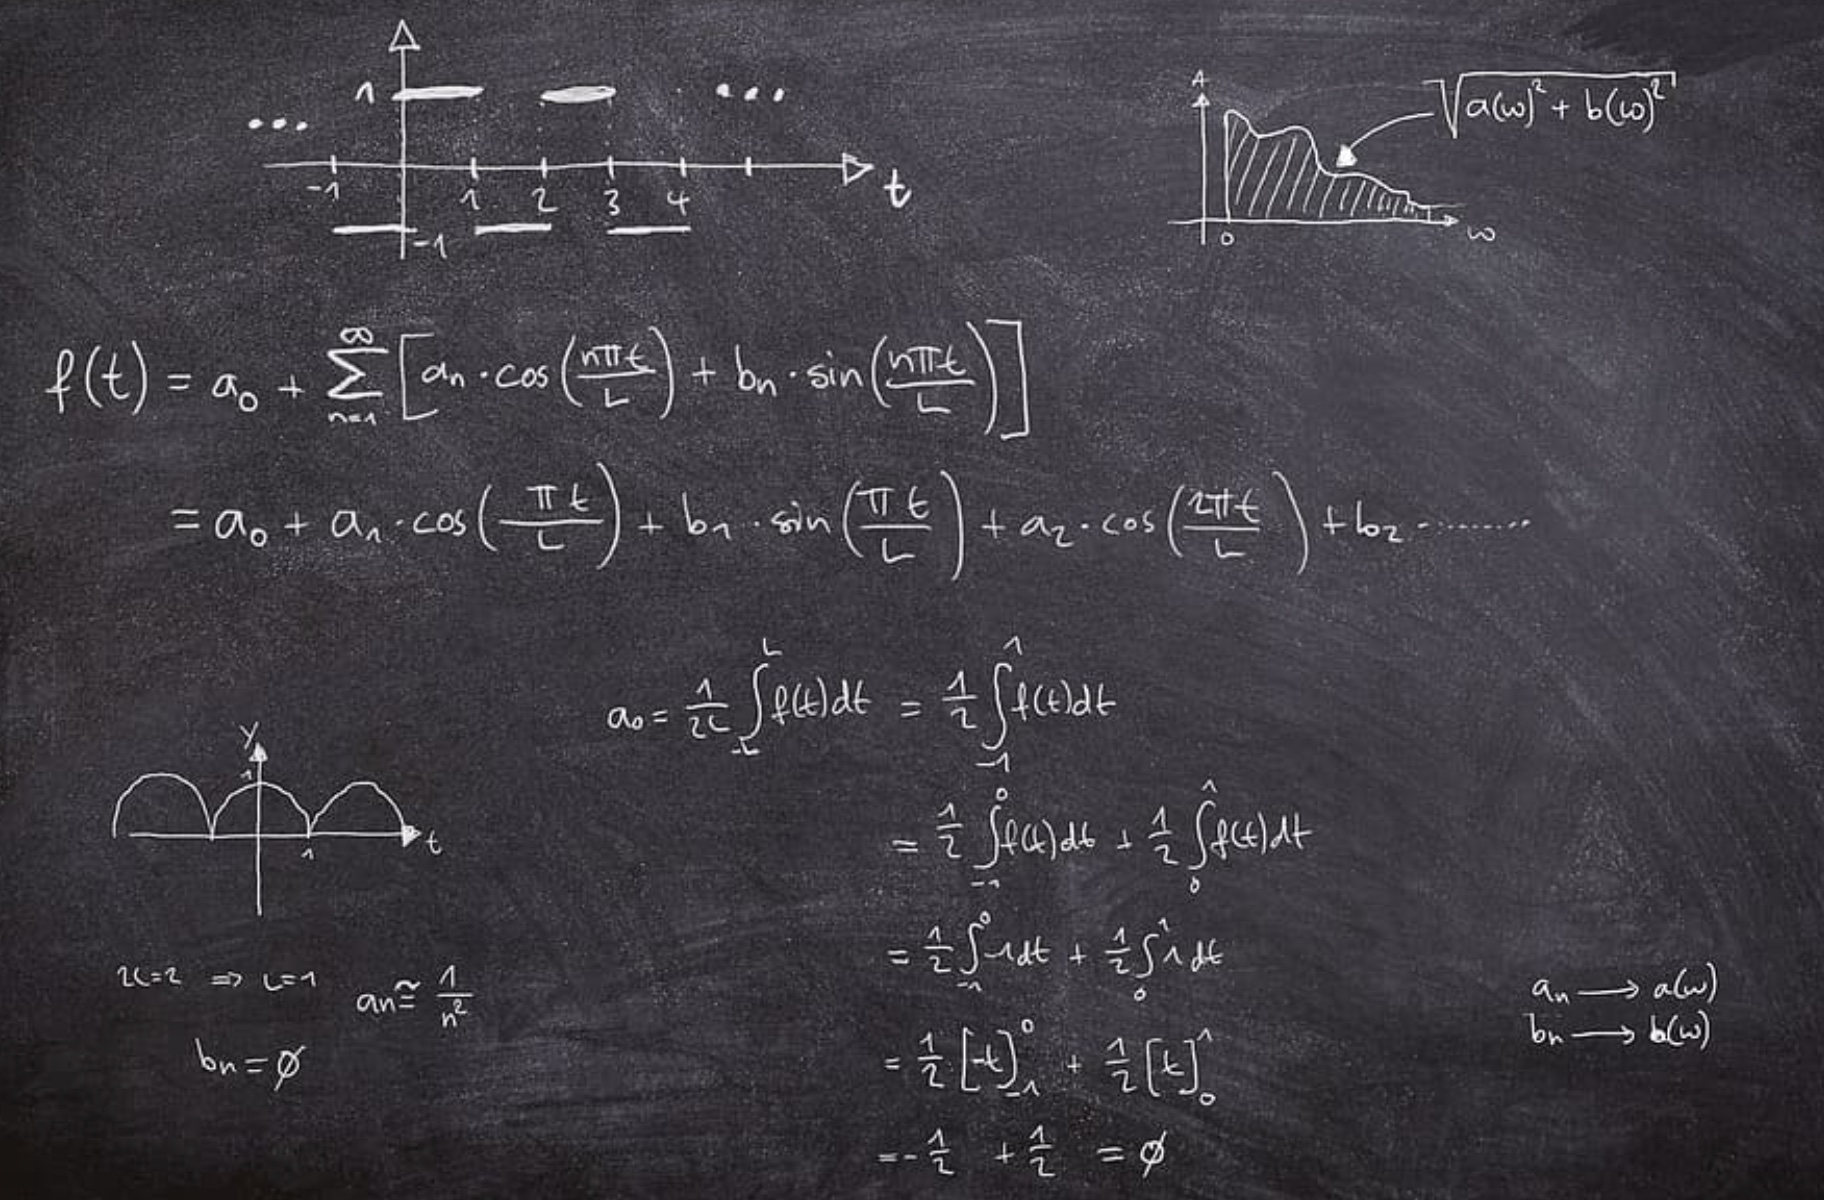 1
... ...
-1 1 2 3 4 t
-1
A
√(a(ω)² + b(ω)²)
0 ω
f(t) = a₀ + ∑_{n=1}^{∞} [aₙ · cos(nπt/L) + bₙ · sin(nπt/L)]
= a₀ + a₁ · cos(πt/L) + b₁ · sin(πt/L) + a₂ · cos(2πt/L) + b₂ ·........
a₀ = 1/2L ∫_{-L}^{L} f(t)dt = 1/2 ∫_{-1}^{1} f(t)dt
= 1/2 ∫_{-1}^{0} f(t)dt + 1/2 ∫_{0}^{1} f(t)dt
= 1/2 ∫_{-1}^{0} -1dt + 1/2 ∫_{0}^{1} 1dt
= 1/2 [-t]_{-1}^{0} + 1/2 [t]_{0}^{1}
= -1/2 + 1/2 = ∅
y
1
1 t
2L=2 ⇒ L=1
aₙ ≅ 1/n²
bₙ = ∅
aₙ → a(ω)
bₙ → b(ω)